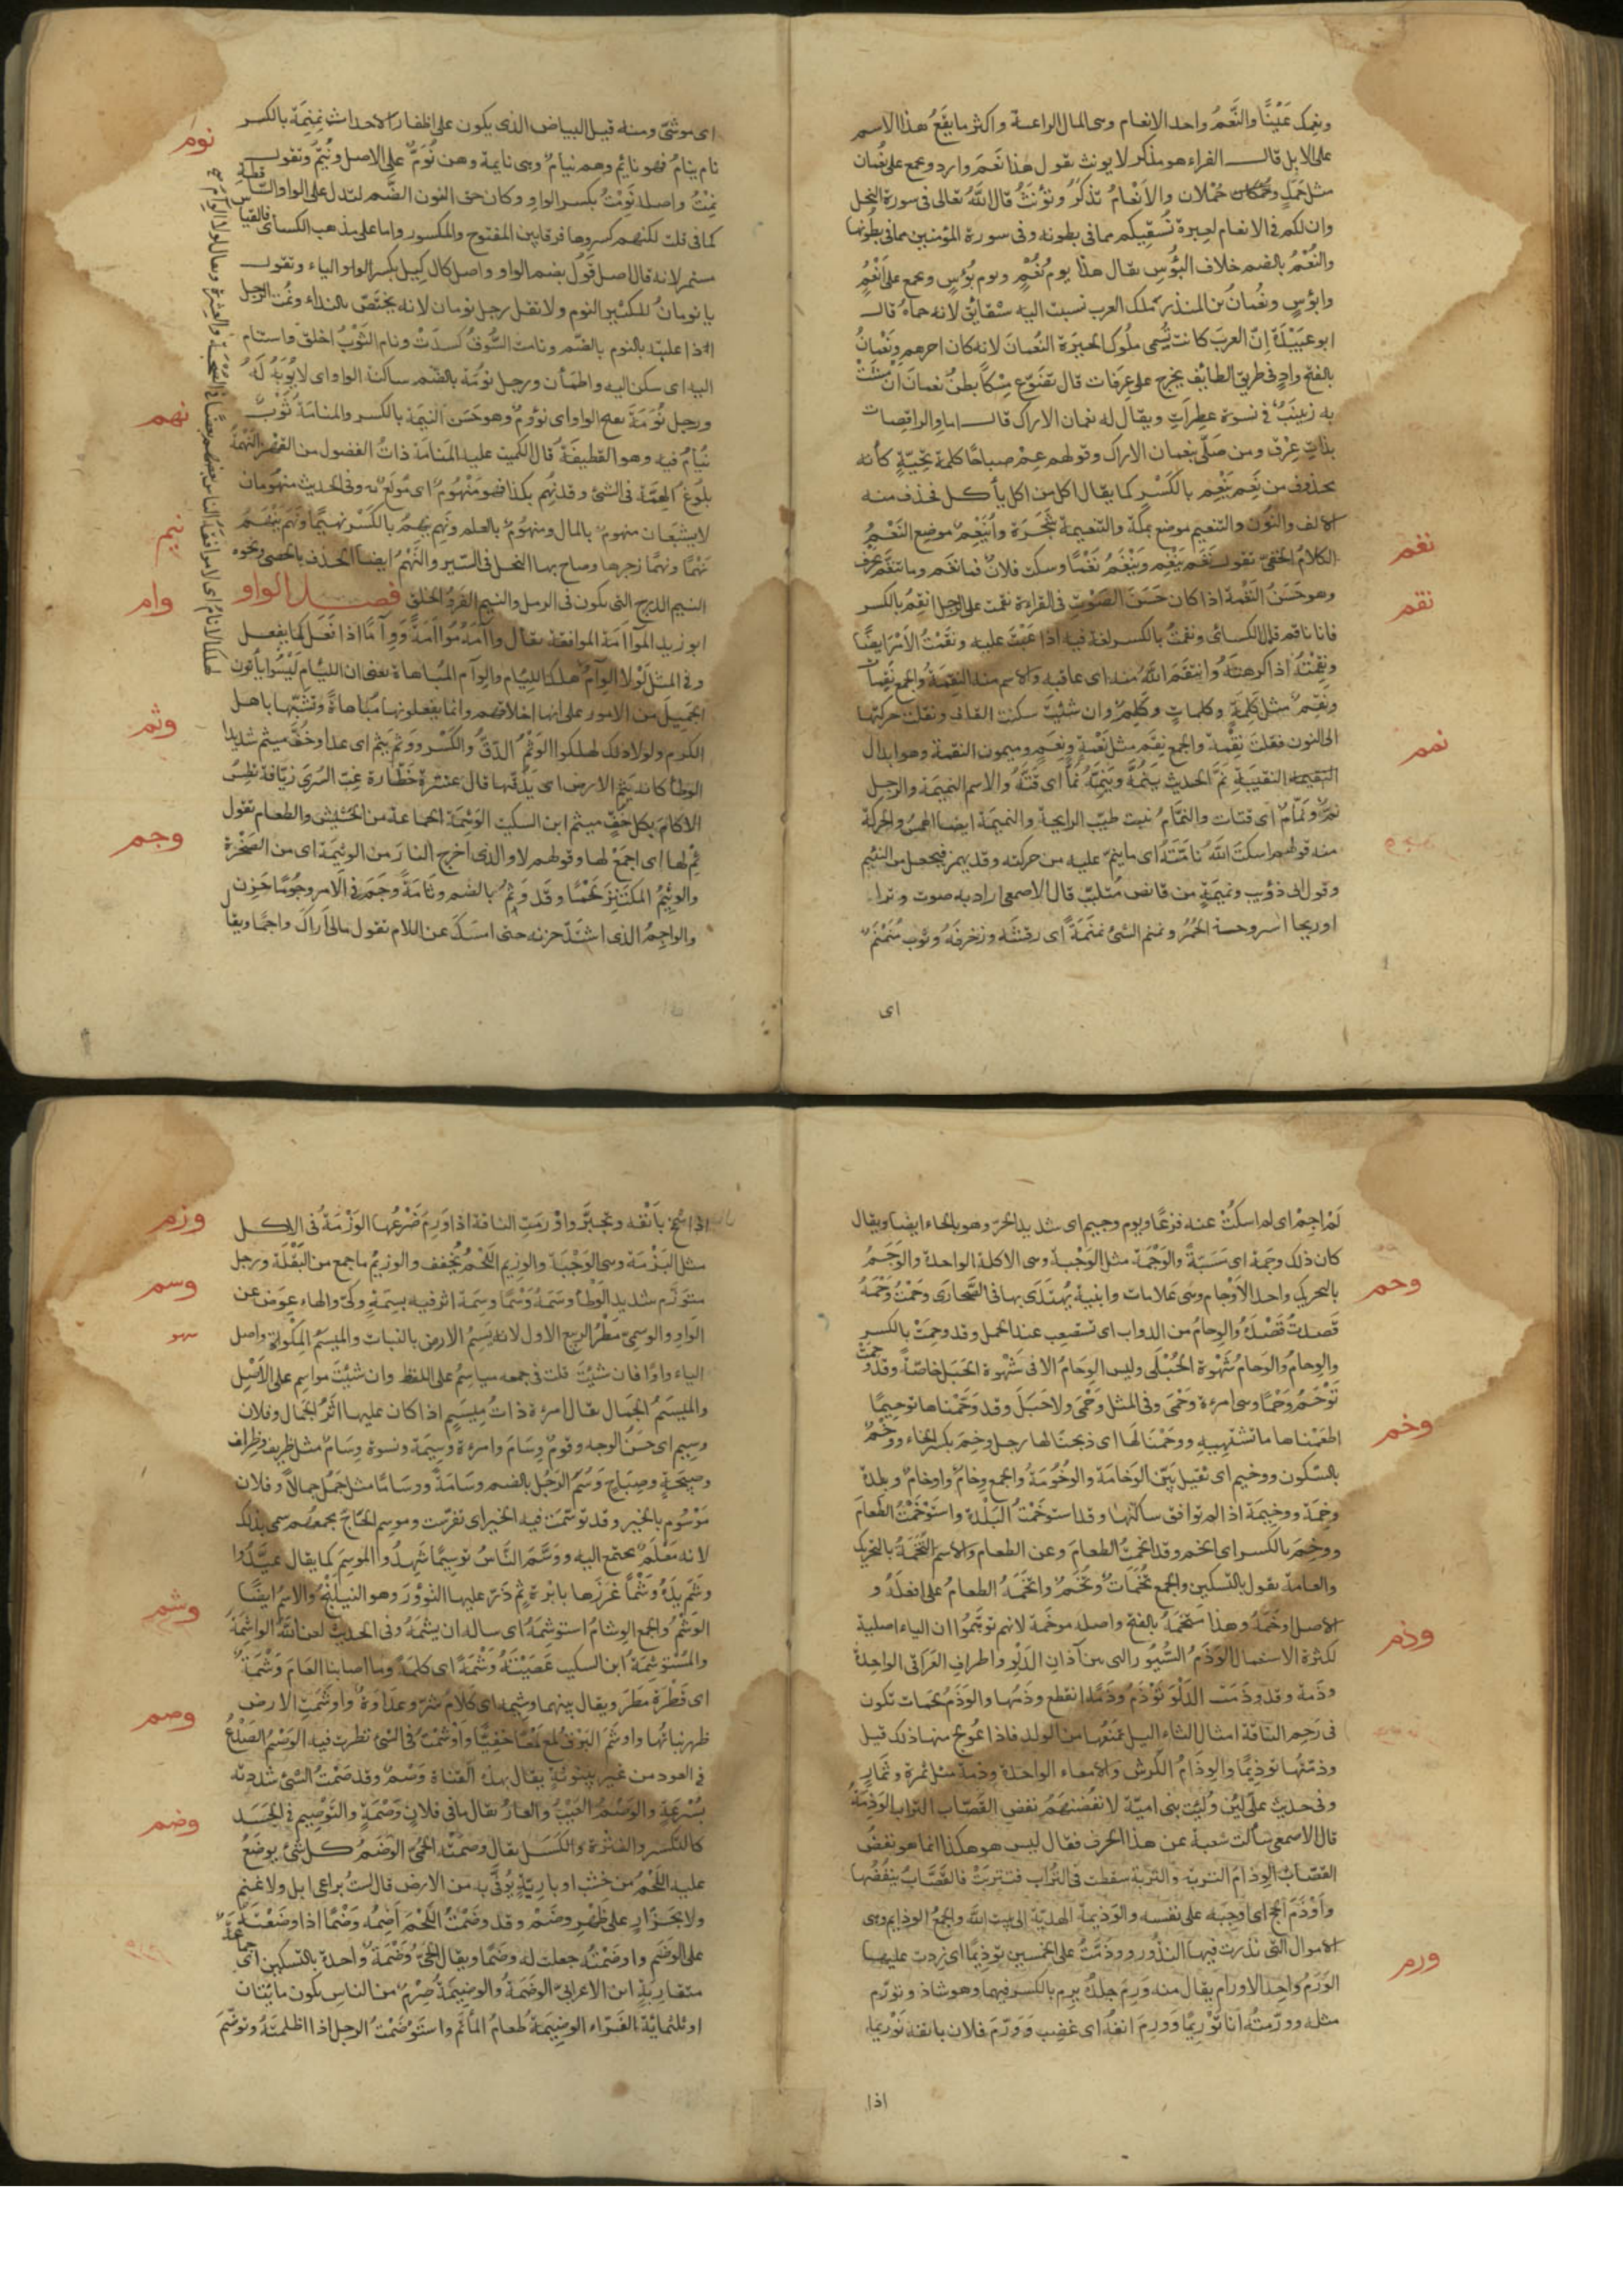 ونعمك عَيْنًا والنَّعَمُ واحد الانعام وهى المال الراعية واكثر ما يقع هذا الاسم
على الابل قال الفراء هو مذكر لا يونث يقول هذا نَعَم وارد ويجمع على نُعْمان
مثل حَمَل وحُمْلان والاَنْعامُ تذكّر وتؤنّث قال الله تعالى فى سورة النحل
وان لكم فى الانعام لعبرة نسقيكم مما فى بطونه وفى سورة المؤمنين مما فى بطونها
والنُعْمُ بالضم خلاف البؤس يقال هذا يوم نُعْمٍ ويوم بُؤسٍ ويجمع على اَنْعُمٍ
وابؤسٍ ونُعمان بن المنذر ملك العرب نسبت اليه شقايق لانه حماه قال
ابو عبيدة انّ العرب كانت تسمى ملوك الحيرة النعمان لانه كان اخرهم ونَعْمان
بالفتح وادٍ فى طريق الطايف يخرج على عرفات قال تضوّع مسكاً بطن نعمان ان مشت
به زينب فى نسوة عطرات ويقال له نعمان الاراك قال اما والراقصات
بذات عِرْق ومن صلّى بنعمان الاراك وقولهم عِمْ صباحًا كلمة تحيّةٍ كأنه
محذوف من نَعِم يَنْعِم بالكسر كما يقال كل من اكل يأكل فحذف منه
الالف والنون والتنعيم موضع بمكّة والتنعيمة شجرة وأَنْعُم موضع النَغْمُ
الكلام الخفىّ تقول نَغَم يَنْغِم ويَنْغَمُ نَغْمًا وسكت فلان فما نغم وما تنغّم بحرف
وهو حَسَنُ النَغْمة اذا كان حَسَنَ الصَّوْتِ فى القراءة نقمت على الرجل انقِمُ بالكسر
فانا ناقم قال الكسائى ونقِمتُ بالكسر لغة فيه اذا عَتَبْتَ عليه ونقَمْتُ الاَمْرَ ايضًا
ونَقِمْتُهُ اذا كرهته وانتقم الله منه اى عاقبه والاسم منه النقمة والجمع نَقِمات
ونَقِمٌ مثل كَلِمَةٍ وكلماتٍ وكَلِمٍ وان شئت سكنت القاف ونقلت حركتها
الى النون فقلت نِقْمة والجمع نِقَم مثل نِعْمةٍ ونِعَمٍ وميمون النقيمة وهو ابدال
النقيبة نَمَّ الحديث يَنُمُّه ويَنِمُّه نَمًّا اى قَتَّهُ والاسم النميمة والرجل
نَمٌّ ونَمّام اى قتات والنمّام نبت طيّب الرايحة والنميمة ايضا الهمس والحركة
منه قولهم اسكت الله نامّته اى ما ينمّ عليه من حركته وقد يهمز فيجعل من النئيم
وقول ابى ذؤيب ونميمةٍ من قانص متلبّب قال الاصمعى اراد به صوت وتر
او ريحا استروحته الحُمُر ونمنم الشئ نمنمةً اى رقشه وزخرفه وثوب مُنَمْنَم
اى
نغم
نقم
نمم
اى موشىّ ومنه قيل البياض الذى يكون على اظفار الاحداث نِمْنِمَة بالكسر
نام ينامُ فهو نائم وهم نيام وهى نايمة وهن نُوَّم على الاصل ونُيَّم وتقول
نِمْتُ واصله نَوِمْتُ بكسر الواو وكان حق النون الضّم لتدل على الواو الساقطة
كما فى قلت لكنهم كسروها فرقا بين المفتوح والمكسور واما على مذهب الكسائى فالقياس
مستمر لانه قال اصل قَوُل بضم الواو واصل كال كَيِل بكسر الواو الياء وتقول
يا نومانُ للكثير النوم ولا تقل رجل نومان لانه يختصّ بالنداء ونُمت الرجل
اذا غلبته بالنوم بالضم ونامت السُّوق كسدت ونام الثوب اخلق واستنام
اليه اى سكن اليه واطمأن ورجل نُومَة بالضم ساكنة الواو اى لا يُؤبَهُ له
ورجل نُوَمَة بفتح الواو اى نؤوم وهو حسن النيمة بالكسر والمنامَةُ ثوبٌ
يُنامُ فيه وهو القطيفة قال الكميت عليه المنامة ذات الفضول من القهز النَّهْمة
بلوغ الهمّة فى الشئ وقد نُهِم بكذا فهو مَنْهومٌ اى مولع به وفى الحديث منهومان
لا يشبعان منهوم بالمال ومنهوم بالعلم ونَهِمَ ينهم بالكسر نهيمًا ونَهَم ينهم
نَهْمًا ونَهَمًا زجرها وصاح بها النحل فى السّير والنَّهْمُ ايضا الحذف بالحصى ونحوه
النيم الدرج التى تكون فى الرمل والنيم الفرو الخلق فصل الواو
ابو زيد المواأمة الموافقة يقال واأمه مُواأمةً ووِآمًا اذا فعل كما يفعل
وفى المثل لولا الوِآم هلك اللئام والوِآم المُباهاة يعنى ان اللئام لَيْسُوا يأتون
الجميل من الامور على انها اخلاقهم وانما يفعلونها مُباهاةً وتشبّها باهل
الكرم ولولا ذلك لهلكوا الوَثْمُ الدّقّ والكسر ووَثَم يَثِم اى عدا وخُفٌّ ميثم شديد
الوطأ كانه يثم الارض اى يدقّها قال عنترة خَطّارة غِبّ السُرى زيّافة تطِسُ
الاكام بكل خُفٍّ ميثم ابن السكيت الوَثيمَة الجماعة من الحشيش والطعام تقول
ثِمْ لها اى اجمع لها وقولهم لا والذى اخرج النار من الوثيمة اى من الصَّخْرة
والوَثيمُ المكتنز لحمًا وقد وَثُم بالضم وثامة وجم فى الامر وجومًا حزن
والواجِمُ الذى اشتدّ حزنه حتى امسك عن الكلام تقول مالى اَراك واجمًا ويقا
نوم
نهم
نيم
وام
وثم
وجم
لَمْ اَجِمْ اى لم اسكُتْ عنه فزعًا ويوم وجيم اى شديد الحرّ وهو بالحاء ايضا ويقال
كان ذلك وجْمة اى سَبّةً والوَجْمَة مثل الوَجْبة وهى الاكلة الواحدة والوَجَمُ
بالتحريك واحد الاَوْجام وهى علامات وابنية يُهتَدَى بها فى الصَّحارى وَحَمْتُ وَحْمَهُ
قصدت قَصْدَهُ والوِحامُ من الدواب اى تستصعب عند الحمل وقد وحِمَت بالكسر
والوِحام والوَحام شَهْوة الحُبْلى وليس الوحام الا فى شَهْوة الحَبَل خاصّةً وقد وحِمَتْ
تَوْحَمُ وَحَمًا وهى امرءة وَحْمَى وفى المثل وَحْمَى ولا حَبَلَ وقد وَحَّمْناها توحيمًا
اطعمناها ما تشتهيه ووحَّمْنا لها اى ذبحنا لها رجل وخِم بكسر الخاء ووخْم
بالسكون ووخيم اى ثقيل بَيّن الوَخامَة والوُخُومَة والجمع وِخامٌ واوخام وبلدة
وخِمَة ووخيمة اذا لم توافق ساكنها وقد استوخَمْتُ البلدة واستوخَمْتُ الطعام
ووخِم بالكسر اى اتخم وقد اتّخمتُ الطعامَ وعن الطعام والاسم التُّخَمَة بالتحريك
والعامة تقول بالتسكين والجمع تُخَمات وتُخَم واتخمه الطعامُ على افعله و
الاصل اوخَمَهُ وهذا متخَمَة بالفتح واصله موخَمة لانهم توهّموا ان التاء اصلية
لكثرة الاستعمال الوَذَمُ السُّيُور التى بين آذان الدلو واطراف العَراقى الواحدة
وذَمة وقد وذِمَت الدلو تَوْذَمُ وذَمًا انقطع وذمها والوَذَمُ لحمات تكون
فى رحم الناقة امثال الثآليل تمنعها من الولد فاذا عُولج منها ذلك قيل
وذّمتُها توذيمًا والوِذامُ الكَرِش والامعاء الواحدة وذمة مثل ثمرة وثمار
وفى حديث علىّ لئن وُلّيت بنى اميّة لانفضنّهم نفض القصّاب التِراب الوَذِمة
قال الاصمعى سألت شعبة عن هذا الحرف فقال ليس هو هكذا انما هو نفض
القصّاب الوِذام التربة والتربة سقطت فى التُراب فتترّبت فالقصّابُ ينفضُها
واَوْذَم الحج اى اوجبه على نفسه والوَذيمة الهديّة الى بيت الله والجمع الوذايم وهى
الاموال التى نذرت فيها النذور ووذّمتُ على الخمسين توذيمًا اى زدت عليها
الوَرَمُ واحد الاورام يقال منه وَرِمَ جلدُه يَرِم بالكسر فيهما وهو شاذ وتورّم
مثله وورّمتُه انا تَوْريمًا ووَرِمَ انفه اى غضب ووَرّم فلان بانفه تَوْريما
اذا
وحم
وخم
وذم
ورم
اذا شمخ بانفه وتجبّر واَوْرَمَتِ الناقة اذا وَرِمَ ضَرْعُها الوَزْمَة فى الاكل
مثل البَزْمة وهى الوَجْبة والوزيم اللحم يُجفّف والوزيم ما جمع من البقلة ورجل
متوزّم شديد الوطأ وسَمَهُ وَسْمًا وسِمَة اثّر فيه بسِمَةٍ وكىّ والهاء عوض عن
الواو والوسمىّ مَطَرُ الربيع الاول لانه يَسِمُ الارض بالنبات والميسم المِكْواة واصل
الياء واوا فان شئت قلت فى جمعه مياسم على اللفظ وان شئت مواسم على الاَصْل
والميسَمُ الجمال يقال امرءة ذات مِيسَم اذا كان عليها اثر الجمال وفلان
وسيم اى حسن الوجه وقومٌ وِسام وامرءة وسيمة ونسوة وِسام مثل ظريف وظراف
وصبيحة وصِباح وَسُم الرجل بالضم وَسامَة ووَسامًا مثل جَمُل جمالا وفلان
مَوْسُوم بالخير وقد توسّمت فيه الخير اى تفرّست وموسم الحاجّ مجمعهم سمى بذلك
لانه مَعْلَم يجتمع اليه ووسّم النّاسُ توسيمًا شهدوا الموسم كما يقال عيّدوا
وشَم يده وَشْمًا غرزها بابرة ثم ذرّ عليها النَؤور وهو النيلنج والاسم ايضا
الوَشْمُ والجمع الوِشام استوشمَهُ اى ساله ان يشمَهُ وفى الحديث لعن الله الواشِمَة
والمستوشِمَة ابن السكيت عَصَيْتُهُ وَشْمَةً اى كلمة وما اصابتنا العام وَشْمَة
اى قطرة مطر ويقال بينهما وشيمة اى كلام شر وعداوة واوشَمَت الارض
ظهر نباتها واوشم البرق لمع لَمْعًا خفيّا واَوْشَمْتُ فى الشئ نظرت فيه الوَصْمُ الصّدْعُ
فى العود من غير بينونة يقال بهذه القناة وَصْم وقد صمت الشئ شددته
بسرعة والوَصْمُ العيب والعار يقال ما فى فلان وَصْمَةٌ والتَّوْصِيم فى الجسد
كالتكسر والفترة والكَسَل يقال وصّمته الحمى الوَضَمُ كل شئ يوضَع
عليه اللحم من خشب او باريّة يُوقَى به من الارض قال لست براعى ابل ولا غنم
ولا بجزّار على ظهر وضَمْ وقد وضَمْتُ اللحم اَضِمُه وَضْمًا اذا وضعتَهُ
على الوضم واوضمته جعلت له وضمًا ويقال الحىّ وَضْمَة واحدة بالتسكين اى جماعة
متقاربة ابن الاعرابىّ الوَضْمَةُ والوضيمة صِرْم من الناس يكون مائتان
او ثلثمائة الفرّاء الوضيمة طعام المأتم واستَوْضَمْتُ الرجل اذا ظلمته وتوضّم
وزم
وسم
سهو
وشم
وصم
وضم